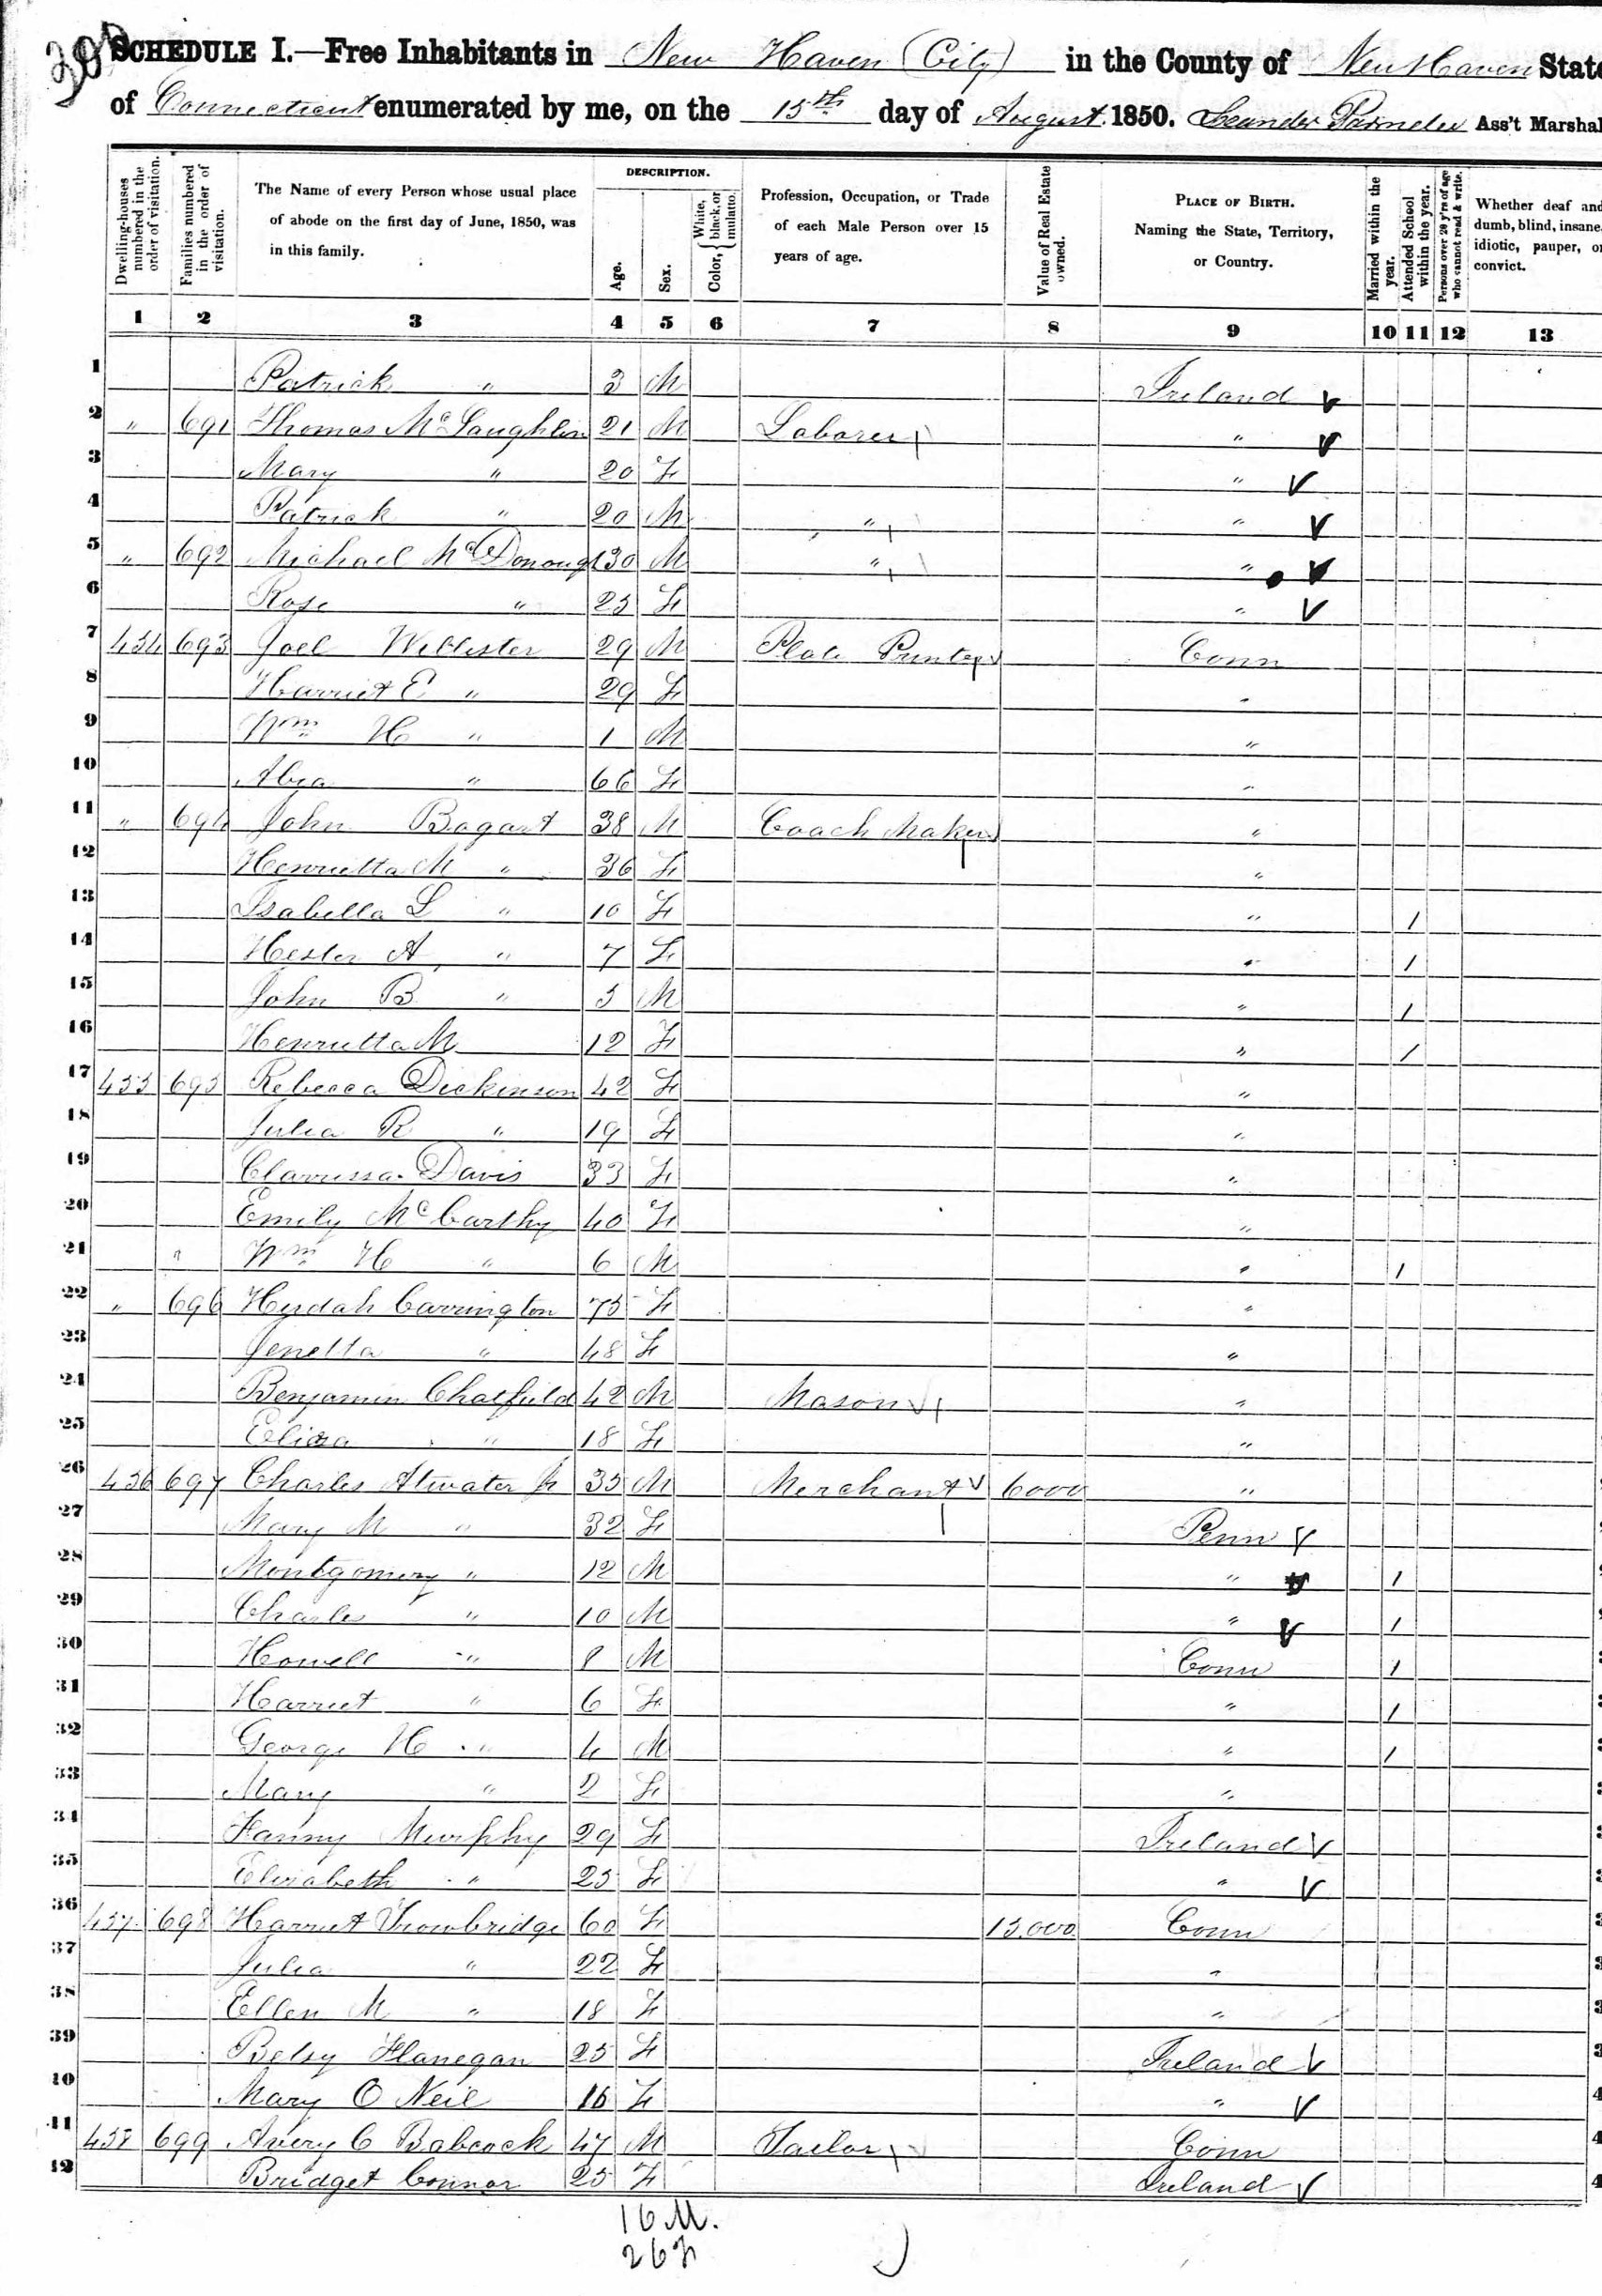 SCHEDULE I.—Free Inhabitants in New Haven (City) in the County of New Haven State
of Connecticut enumerated by me, on the 15th day of August 1850. Leander Parmelee Ass't Marshal
Dwelling-houses numbered in the order of visitation.
Families numbered in the order of visitation.
The Name of every Person whose usual place of abode on the first day of June, 1850, was in this family.
DESCRIPTION.
Age.
Sex.
Color, { White, black, or mulatto.
Profession, Occupation, or Trade of each Male Person over 15 years of age.
Value of Real Estate owned.
PLACE OF BIRTH. Naming the State, Territory, or Country.
Married within the year.
Attended School within the year.
Persons over 20 y'rs of age who cannot read & write.
Whether deaf and dumb, blind, insane, idiotic, pauper, or convict.
1 2 3 4 5 6 7 8 9 10 11 12 13
1 Patrick " 3 M Ireland
2 " 691 Thomas McLaughlin 21 M Laborer "
3 Mary " 20 F "
4 Patrick " 20 M " "
5 " 692 Michael McDonough 30 M " "
6 Rose " 25 F "
7 454 693 Joel Webster 29 M Plate Printer Conn
8 Harriet E " 29 F "
9 Wm H " 1 M "
10 Abia " 66 F "
11 " 694 John Bogart 38 M Coach Maker "
12 Henrietta M " 36 F "
13 Isabella L " 10 F " /
14 Hester A " 7 F " /
15 John B " 5 M " /
16 Henrietta M 12 F " /
17 455 695 Rebecca Dickinson 42 F "
18 Julia R " 19 F "
19 Clarrissa Davis 33 F "
20 Emily McCarthy 40 F "
21 " Wm H " 6 M " /
22 " 696 Huldah Carrington 75 F "
23 Jenetta " 48 F "
24 Benjamin Chatfield 42 M Mason "
25 Eliza " 18 F "
26 456 697 Charles Atwater Jr 35 M Merchant 6000 "
27 Mary M " 32 F Penn
28 Montgomery " 12 M " /
29 Charles " 10 M " /
30 Howell " 8 M Conn /
31 Harriet " 6 F " /
32 George H " 4 M " /
33 Mary " 2 F "
34 Fanny Murphy 29 F Ireland
35 Elizabeth " 25 F "
36 457 698 Harriet Trowbridge 60 F 15,000 Conn
37 Julia " 22 F "
38 Ellen M " 18 F "
39 Betsy Flanegan 25 F Ireland
40 Mary O Neil 16 F "
41 458 699 Avery C Babcock 47 M Tailor Conn
42 Bridget Connor 25 F Ireland
16 M.
26 F